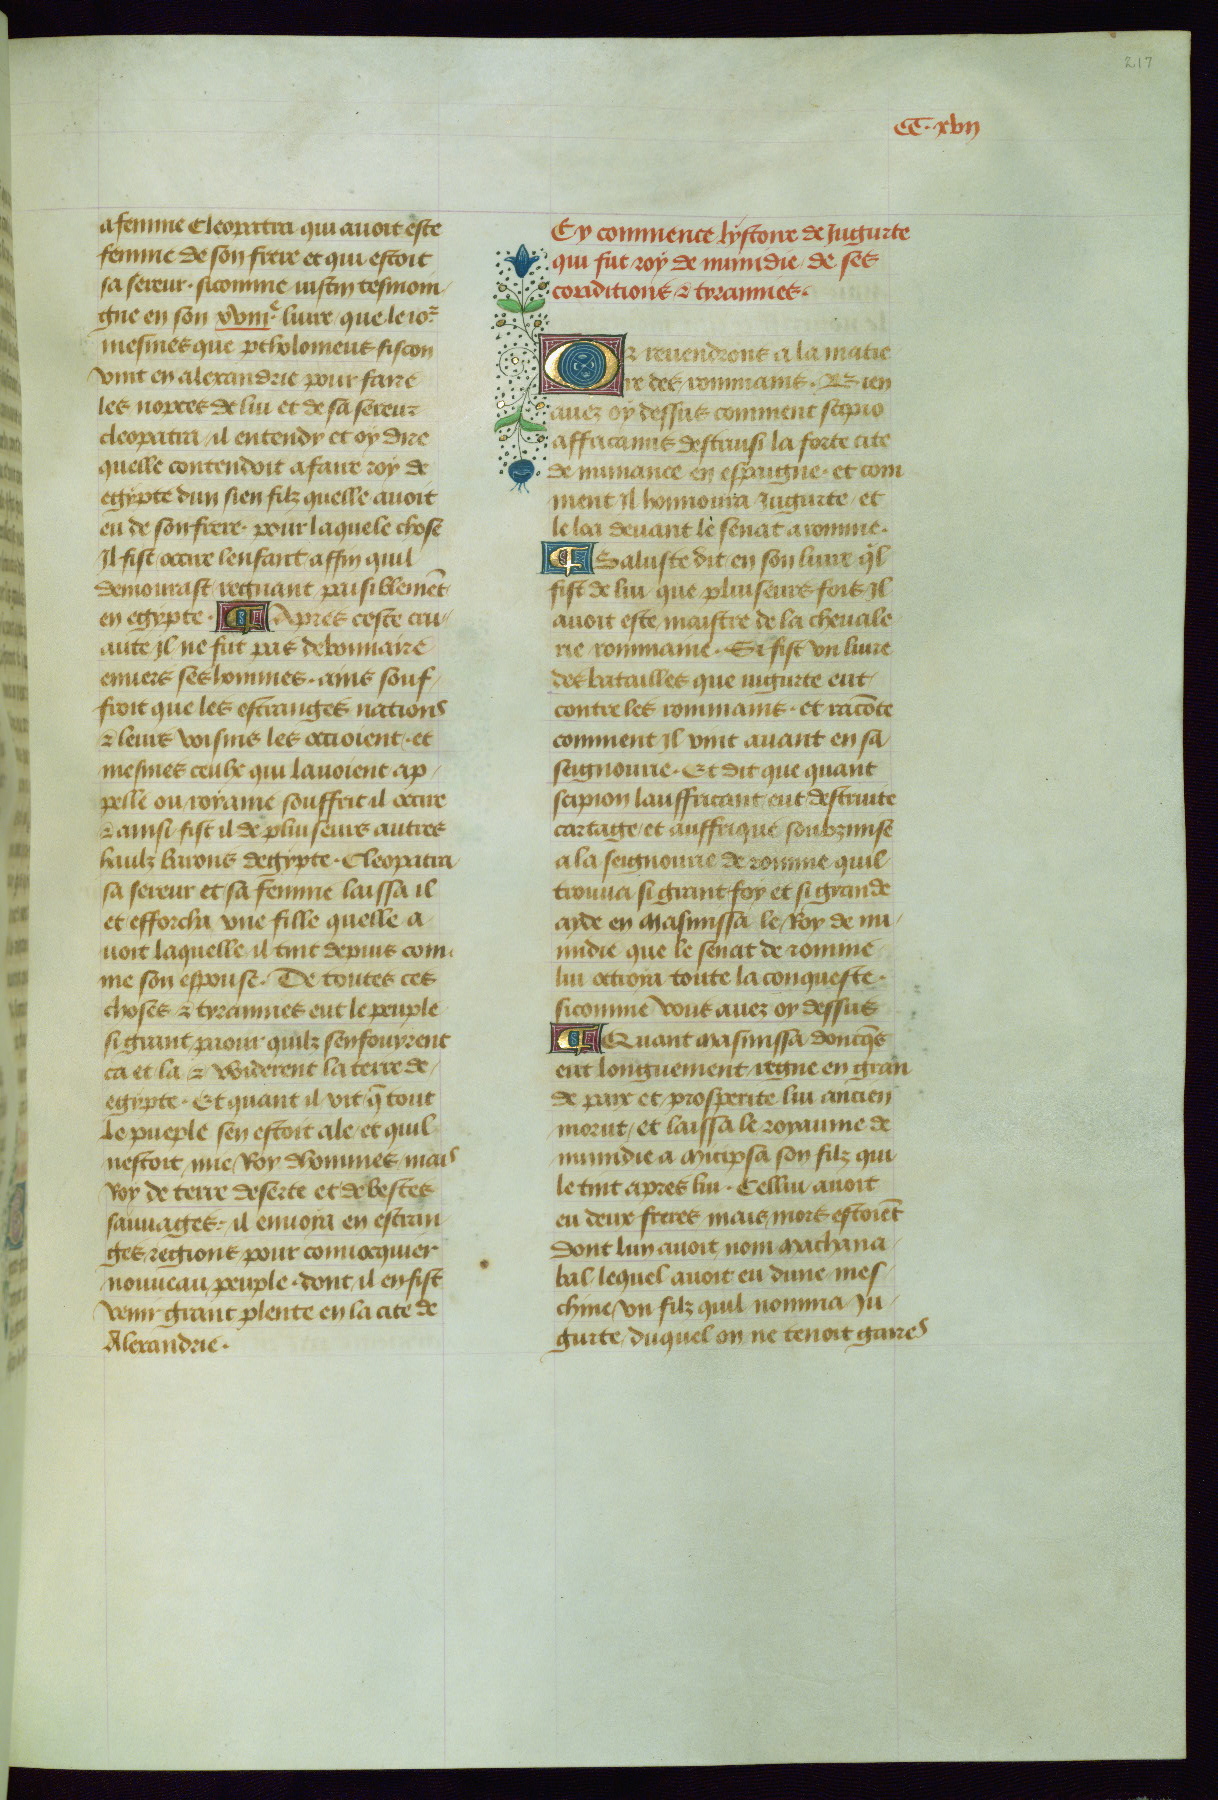 217
CC·xvii
a femme Cleopatra qui auoit este
femme de son frere et qui estoit
sa sereur· sicomme iustin tesmoin/
gne en son xviiie liure/ que le ior
mesmes que ptholomeus fiscon
vint en alexandrie pour faire
les nopces de lui et de sa sereur
cleopatra/ il entendy et oy dire
quelle contendoit a faire roy de
egypte dun sien filz quelle auoit
eu de son frere· pour laquele chose
Il fist occire lenfant affin quil
demourast regnant paisiblemēt
en egypte· Apres ceste cru/
aute Il ne fut pas debonnaire
enuers ses hommes· ains souf/
froit que les estranges nations
⁊ leurs voisins les occioient· et
mesmes ceulx qui lauoient ap/
pelle ou royame souffrit il occire
⁊ ainsi fist il de pluiseurs autres
haulz barons degypte· Cleopatra
sa sereur et sa femme laissa il
et efforcha vne fille quelle a/
uoit laquelle il tint depuis com/
me son espouse· De toutes ces
choses ⁊ tyrannies eut le peuple
si grant paour quilz senfouyrent
ca et la ⁊ widerent la terre de/
egypte· Et quant il vit q̄ tout
le pueple sen estoit ale/ et quil
nestoit mie Roy dhommes/ mais
Roy de terre deserte et de bestes
sauuages· il enuoya en estran/
ges regions pour conuocquier
nouueau peuple· dont il en fist
venir grant plente en la cite de
Alexandrie·
Cy commence lystoire de Iugurte
qui fut roy de numidie/ de ses
conditions ⁊ tyrannies·
Or reuendrons a la matie
re des rommains· Bien
auez oy dessus comment scipio
affricanus destruisi la forte cite
de numance en espaigne· et com
ment Il honnoura Iugurte/ et
le loa deuant le senat a romme·
Saluste dit en son liure q̄l
fist de lui que pluiseurs fois Il
auoit este maistre de la cheuale
rie rommaine· Si fist vn liure
des batailles que iugurte eut
contre les rommains· et racōte
comment Il vint auant en sa
seignourie· Et dit que quant
scipion lauffricant eut destruite
cartage/ et auffrique soubzmise
a la seignourie de romme quil
trouua si grant foy et si grande
ayde en Masinissa le Roy de nu/
midie que le senat de romme
lui octroya toute la conqueste·
sicomme vous auez oy dessus
Quant Masinissa doncq̄s
eut longuement regne en gran
de paix et prosperite lui ancien
morut/ et laissa le royaume de
numidie a Micipsa son filz qui
le tint apres lui· Cellui auoit
eu deux freres mais mors estoiēt
dont lun auoit nom Machana/
bal lequel auoit eu dune mes/
chine/ vn filz quil nomma Iu/
gurte/ duquel on ne tenoit gaires